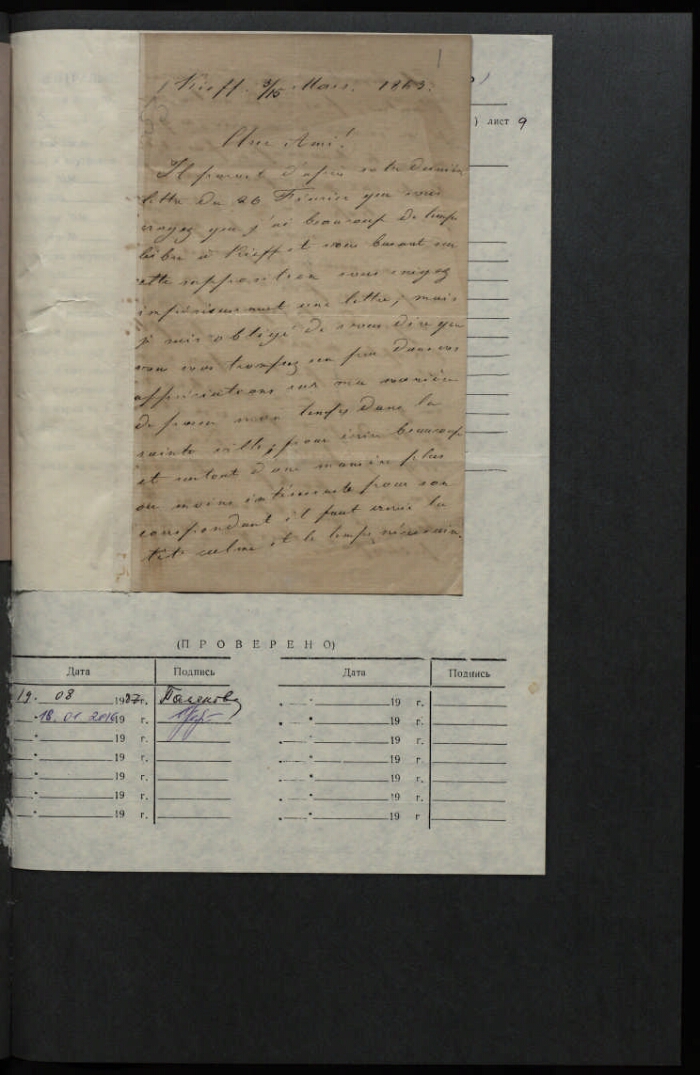 1
Kieff. 3/15 Mars. 1863.
) лист 9
Cher Ami!
Il parait d'après votre dernière
lettre du 26 Février que vous
croyez que j'ai beaucoup de temps
libre à Kieff et vous basant sur
cette supposition vous exigez
une lettre; mais
je suis obligé de vous dire que
vous vous trompez un peu dans vos
appréciations sur ma manière
de passer mon temps dans la
sainte ville; pour écrire beaucoup
et surtout d'une manière plus
ou moins intéressante pour son
correspondant il faut avoir la
tête calme et le temps nécessaire.
(ПРОВЕРЕНО)
Дата Подпись Дата Подпись
19. 08 1987г. „ “ 19 г.
18.01 2016 19 „ “ 19 г.
“ 19 г. „ “ 19 г.
“ 19 г. „ “ 19 г.
“ 19 г. „ “ 19 г.
“ 19 г. „ “ 19 г.
“ 19 г. „ “ 19 г